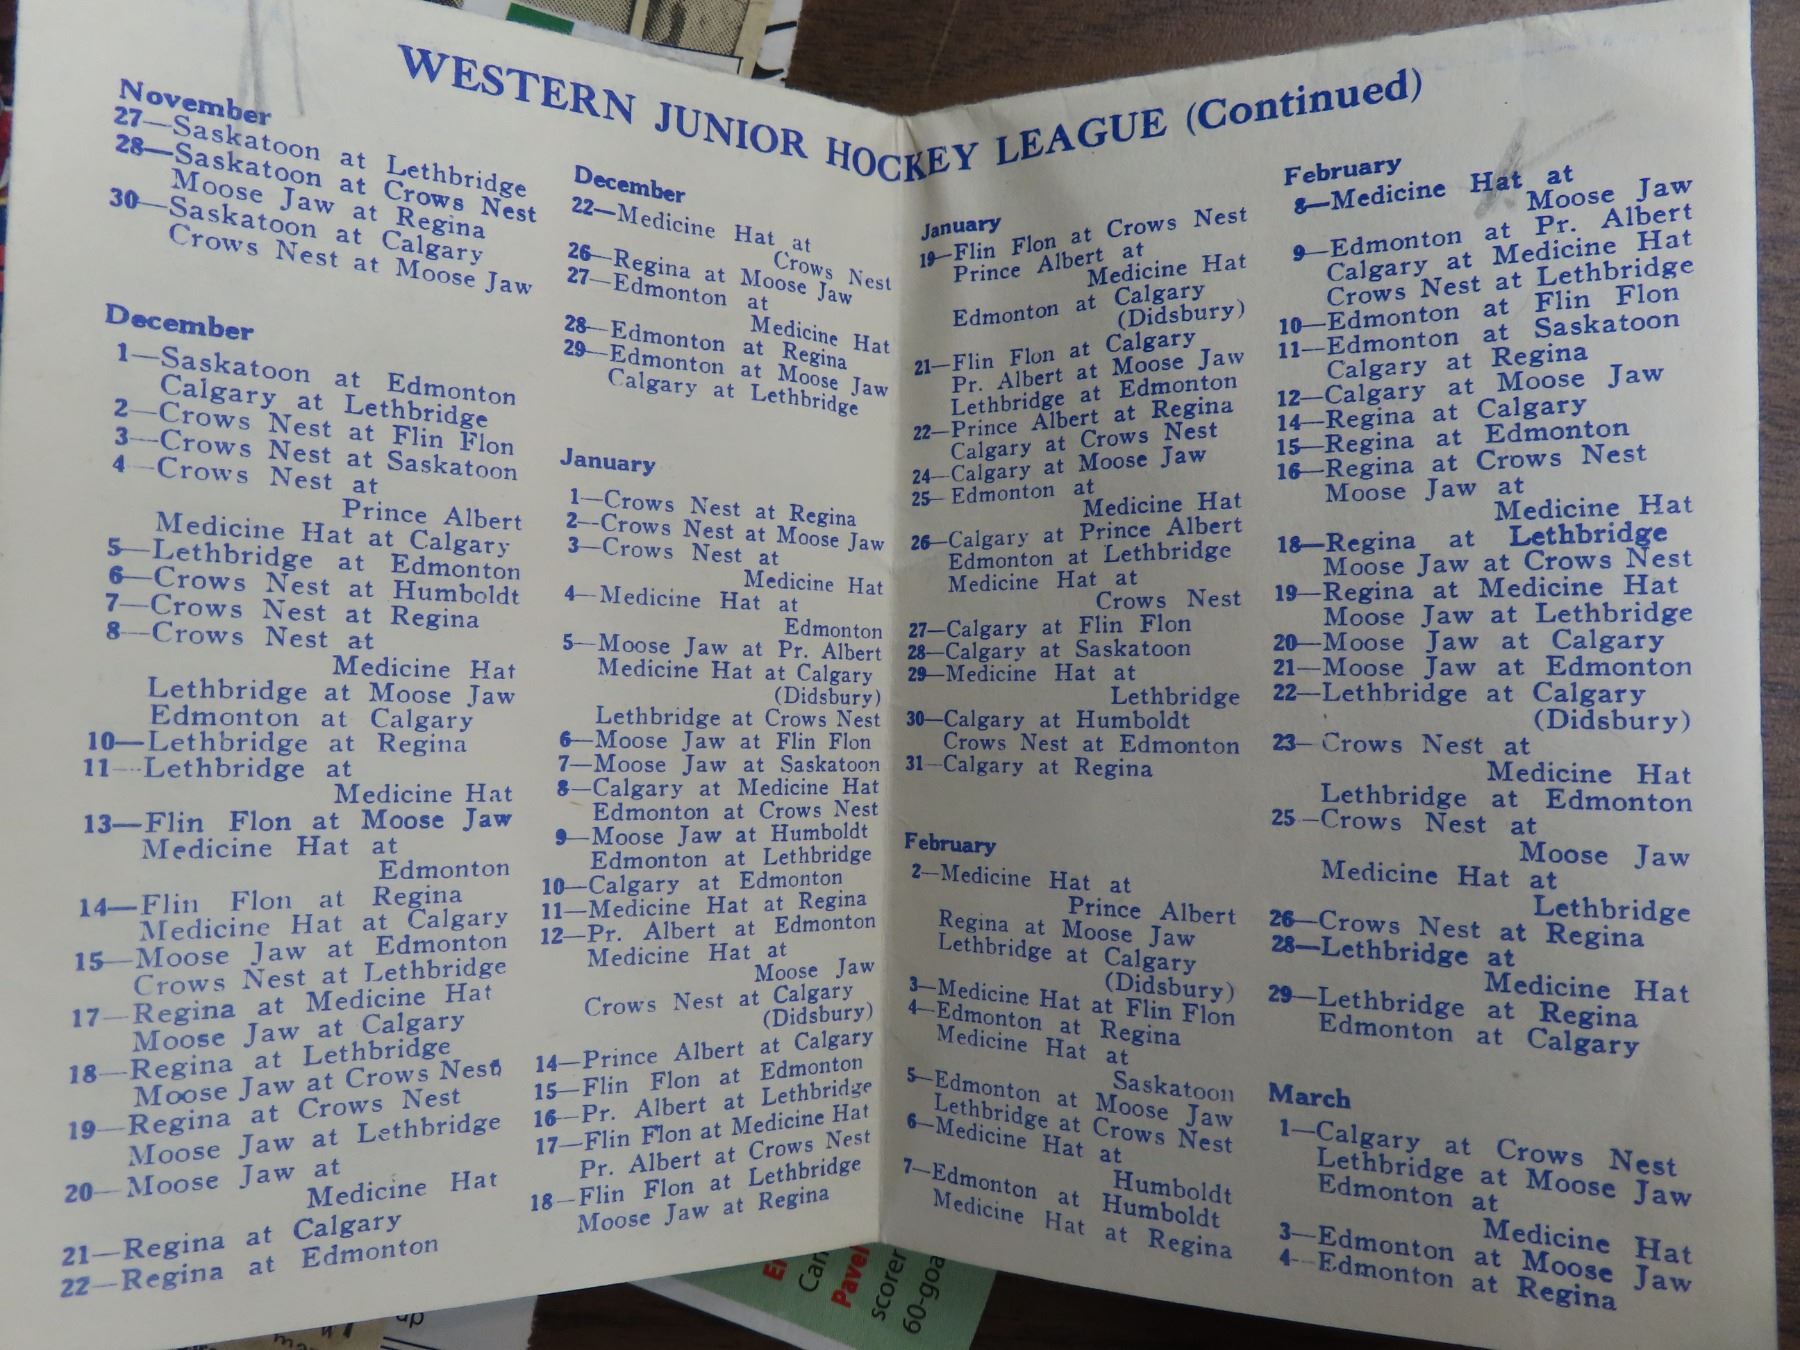 WESTERN JUNIOR HOCKEY LEAGUE (Continued)
November
27—Saskatoon at Lethbridge
28—Saskatoon at Crows Nest
Moose Jaw at Regina
30—Saskatoon at Calgary
Crows Nest at Moose Jaw
December
1—Saskatoon at Edmonton
Calgary at Lethbridge
2—Crows Nest at Flin Flon
3—Crows Nest at Saskatoon
4—Crows Nest at
Prince Albert
Medicine Hat at Calgary
5—Lethbridge at Edmonton
6—Crows Nest at Humboldt
7—Crows Nest at Regina
8—Crows Nest at
Medicine Hat
Lethbridge at Moose Jaw
Edmonton at Calgary
10—Lethbridge at Regina
11—Lethbridge at
Medicine Hat
13—Flin Flon at Moose Jaw
Medicine Hat at
Edmonton
14—Flin Flon at Regina
Medicine Hat at Calgary
15—Moose Jaw at Edmonton
Crows Nest at Lethbridge
17—Regina at Medicine Hat
Moose Jaw at Calgary
18—Regina at Lethbridge
Moose Jaw at Crows Nest
19—Regina at Crows Nest
Moose Jaw at Lethbridge
20—Moose Jaw at
Medicine Hat
21—Regina at Calgary
22—Regina at Edmonton
December
22—Medicine Hat at
Crows Nest
26—Regina at Moose Jaw
27—Edmonton at
Medicine Hat
28—Edmonton at Regina
29—Edmonton at Moose Jaw
Calgary at Lethbridge
January
1—Crows Nest at Regina
2—Crows Nest at Moose Jaw
3—Crows Nest at
Medicine Hat
4—Medicine Hat at
Edmonton
5—Moose Jaw at Pr. Albert
Medicine Hat at Calgary
(Didsbury)
Lethbridge at Crows Nest
6—Moose Jaw at Flin Flon
7—Moose Jaw at Saskatoon
8—Calgary at Medicine Hat
Edmonton at Crows Nest
9—Moose Jaw at Humboldt
Edmonton at Lethbridge
10—Calgary at Edmonton
11—Medicine Hat at Regina
12—Pr. Albert at Edmonton
Medicine Hat at
Moose Jaw
Crows Nest at Calgary
(Didsbury)
14—Prince Albert at Calgary
15—Flin Flon at Edmonton
16—Pr. Albert at Lethbridge
17—Flin Flon at Medicine Hat
Pr. Albert at Crows Nest
18—Flin Flon at Lethbridge
Moose Jaw at Regina
January
19—Flin Flon at Crows Nest
Prince Albert at
Medicine Hat
Edmonton at Calgary
(Didsbury)
21—Flin Flon at Calgary
Pr. Albert at Moose Jaw
Lethbridge at Edmonton
22—Prince Albert at Regina
Calgary at Crows Nest
24—Calgary at Moose Jaw
25—Edmonton at
Medicine Hat
26—Calgary at Prince Albert
Edmonton at Lethbridge
Medicine Hat at
Crows Nest
27—Calgary at Flin Flon
28—Calgary at Saskatoon
29—Medicine Hat at
Lethbridge
30—Calgary at Humboldt
Crows Nest at Edmonton
31—Calgary at Regina
February
2—Medicine Hat at
Prince Albert
Regina at Moose Jaw
Lethbridge at Calgary
(Didsbury)
3—Medicine Hat at Flin Flon
4—Edmonton at Regina
Medicine Hat at
Saskatoon
5—Edmonton at Moose Jaw
Lethbridge at Crows Nest
6—Medicine Hat at
Humboldt
7—Edmonton at Humboldt
Medicine Hat at Regina
February
8—Medicine Hat at
Moose Jaw
9—Edmonton at Pr. Albert
Calgary at Medicine Hat
Crows Nest at Lethbridge
10—Edmonton at Flin Flon
11—Edmonton at Saskatoon
Calgary at Regina
12—Calgary at Moose Jaw
14—Regina at Calgary
15—Regina at Edmonton
16—Regina at Crows Nest
Moose Jaw at
Medicine Hat
18—Regina at Lethbridge
Moose Jaw at Crows Nest
19—Regina at Medicine Hat
Moose Jaw at Lethbridge
20—Moose Jaw at Calgary
21—Moose Jaw at Edmonton
22—Lethbridge at Calgary
(Didsbury)
23—Crows Nest at
Medicine Hat
Lethbridge at Edmonton
25—Crows Nest at
Moose Jaw
Medicine Hat at
Lethbridge
26—Crows Nest at Regina
28—Lethbridge at
Medicine Hat
29—Lethbridge at Regina
Edmonton at Calgary
March
1—Calgary at Crows Nest
Lethbridge at Moose Jaw
Edmonton at
Medicine Hat
3—Edmonton at Moose Jaw
4—Edmonton at Regina
Pavel
scorer
60-goa